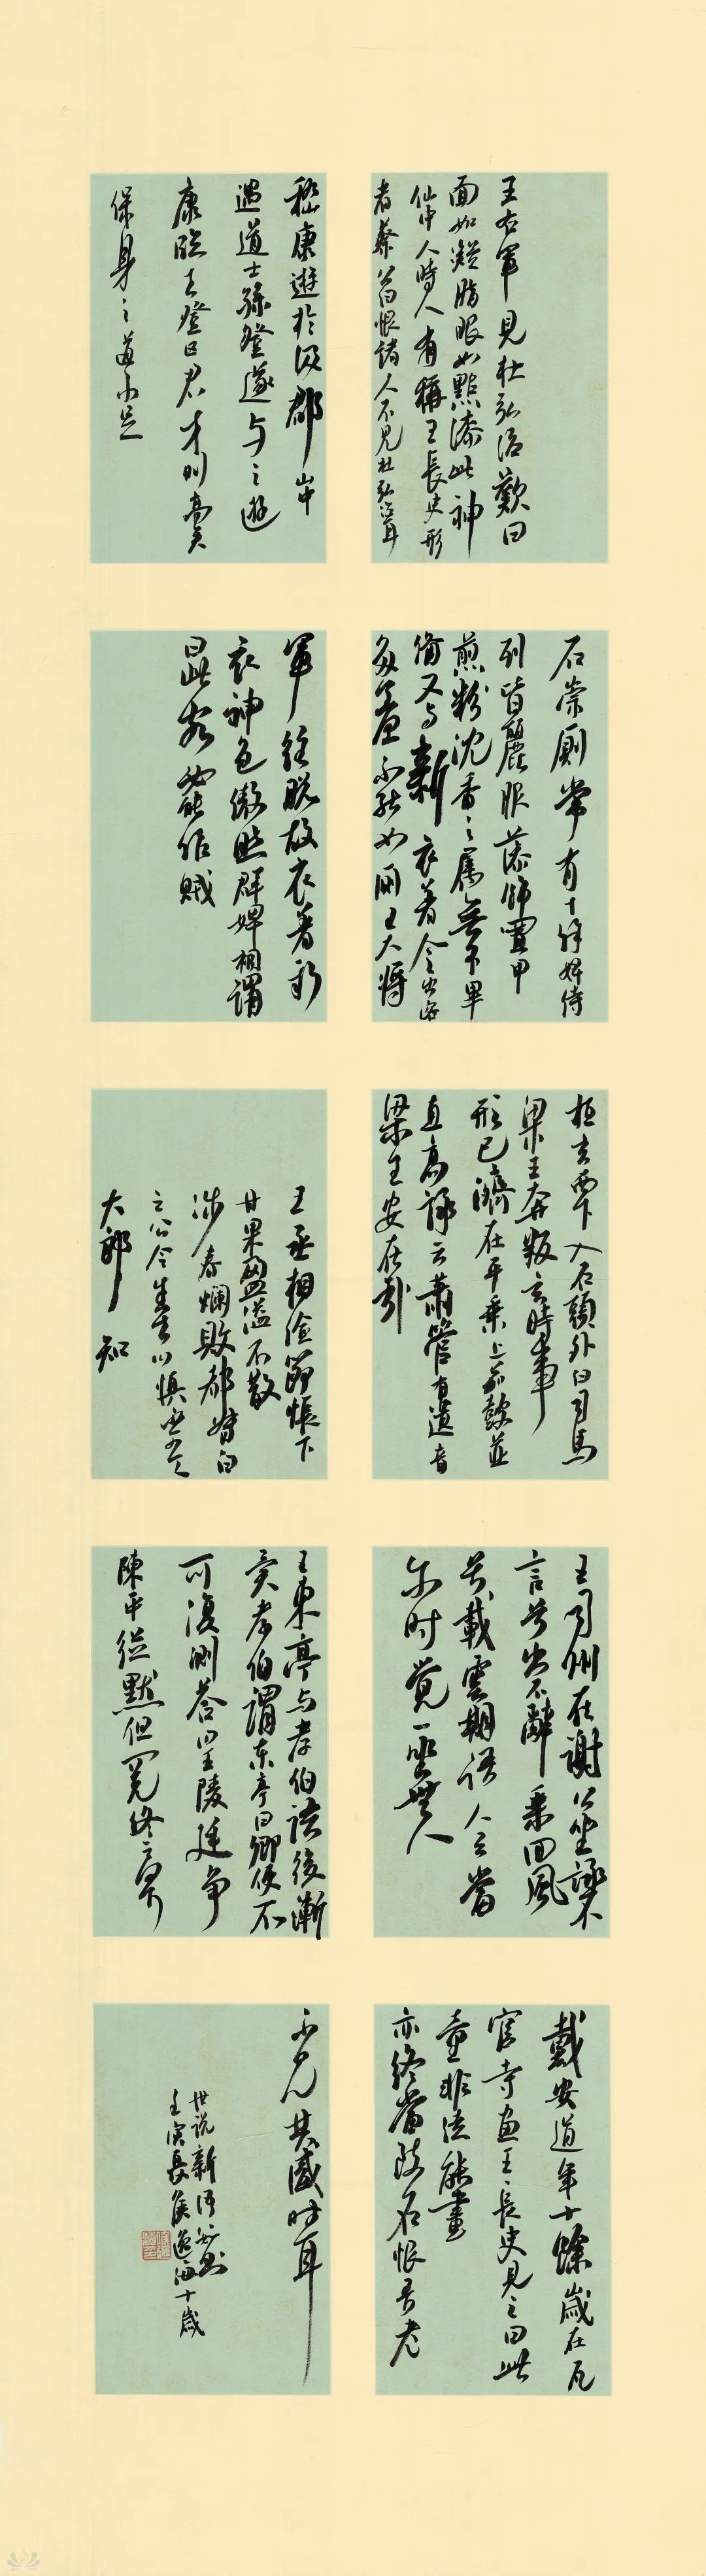 王右軍見杜弘治歎曰
面如凝脂眼如點漆此神
仙中人時人有稱王長史形
者蔡公曰恨諸人不見杜弘治耳
嵇康遊於汲郡山中
遇道士孫登遂与之遊
康臨去登曰君才則高矣
保身之道不足
石崇廁常有十餘婢侍
列皆麗服藻飾置甲
煎粉沈香之屬無不畢
備又与新衣著令出客
多羞不能如廁王大將
軍往脫故衣著新
衣神色傲然群婢相謂
曰此客必能作賊
桓玄西下入石頭外白司馬
梁王奔叛玄時事
形已濟在平乘上笳鼓並
直高詠云蕭管有遺音
梁王安在哉
王丞相儉節帳下
甘果盈溢不散
涉春爛敗都督白
之公令舍去曰慎不可令
大郎知
王司州在謝公坐詠入不
言兮出不辭乘回風
兮載雲旗語人云當
尔时覺一坐無人
王東亭与孝伯語後漸
異孝伯謂東亭曰卿便不
可復測答曰王陵廷争
陳平從默但問克終云何耳
戴安道年十餘歲在瓦
官寺畫王長史見之曰此
童非徒能畫
亦終當致名恨吾老
不見其盛时耳
世说新语
壬寅
十歲